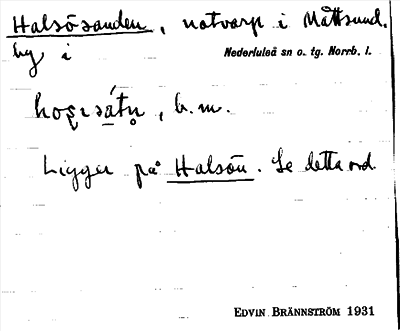 Halsösanden, notvarp i Måttsund.
by i Nederluleå sn o. tg. Norrb. l.
, b. m.
Ligger på Halsön. Se detta ord.
EDVIN BRÄNNSTRÖM 1931